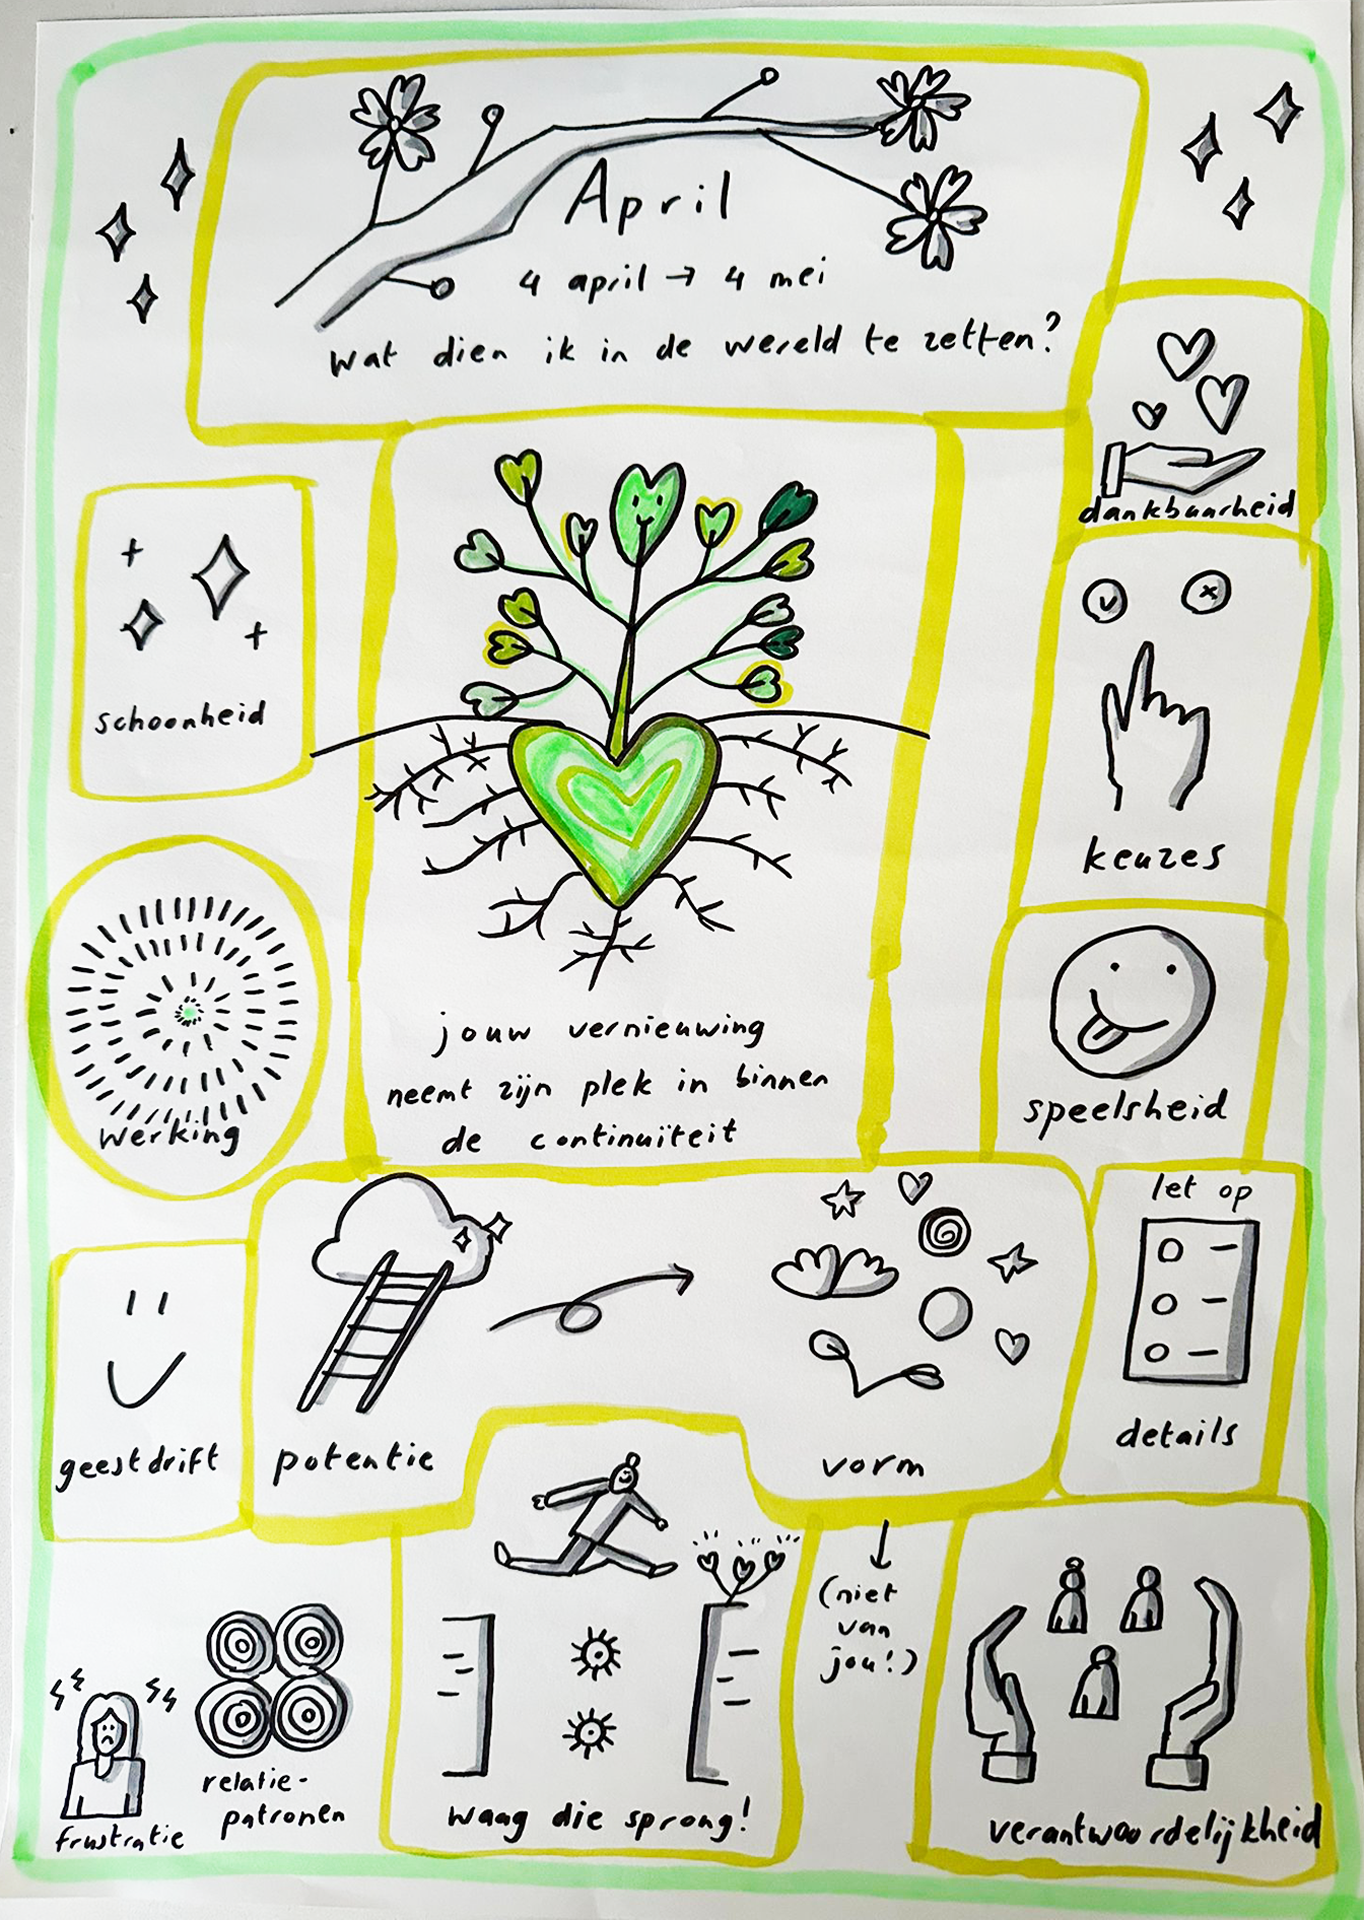 April
4 april → 4 mei
wat dien ik in de wereld te zetten?
dankbaarheid
schoonheid
keuzes
werking
jouw vernieuwing
neemt zijn plek in binnen
de continuïteit
speelsheid
let op
details
geestdrift
potentie
vorm
(niet
van
jou!)
frustratie
relatie-
patronen
waag die sprong!
verantwoordelijkheid